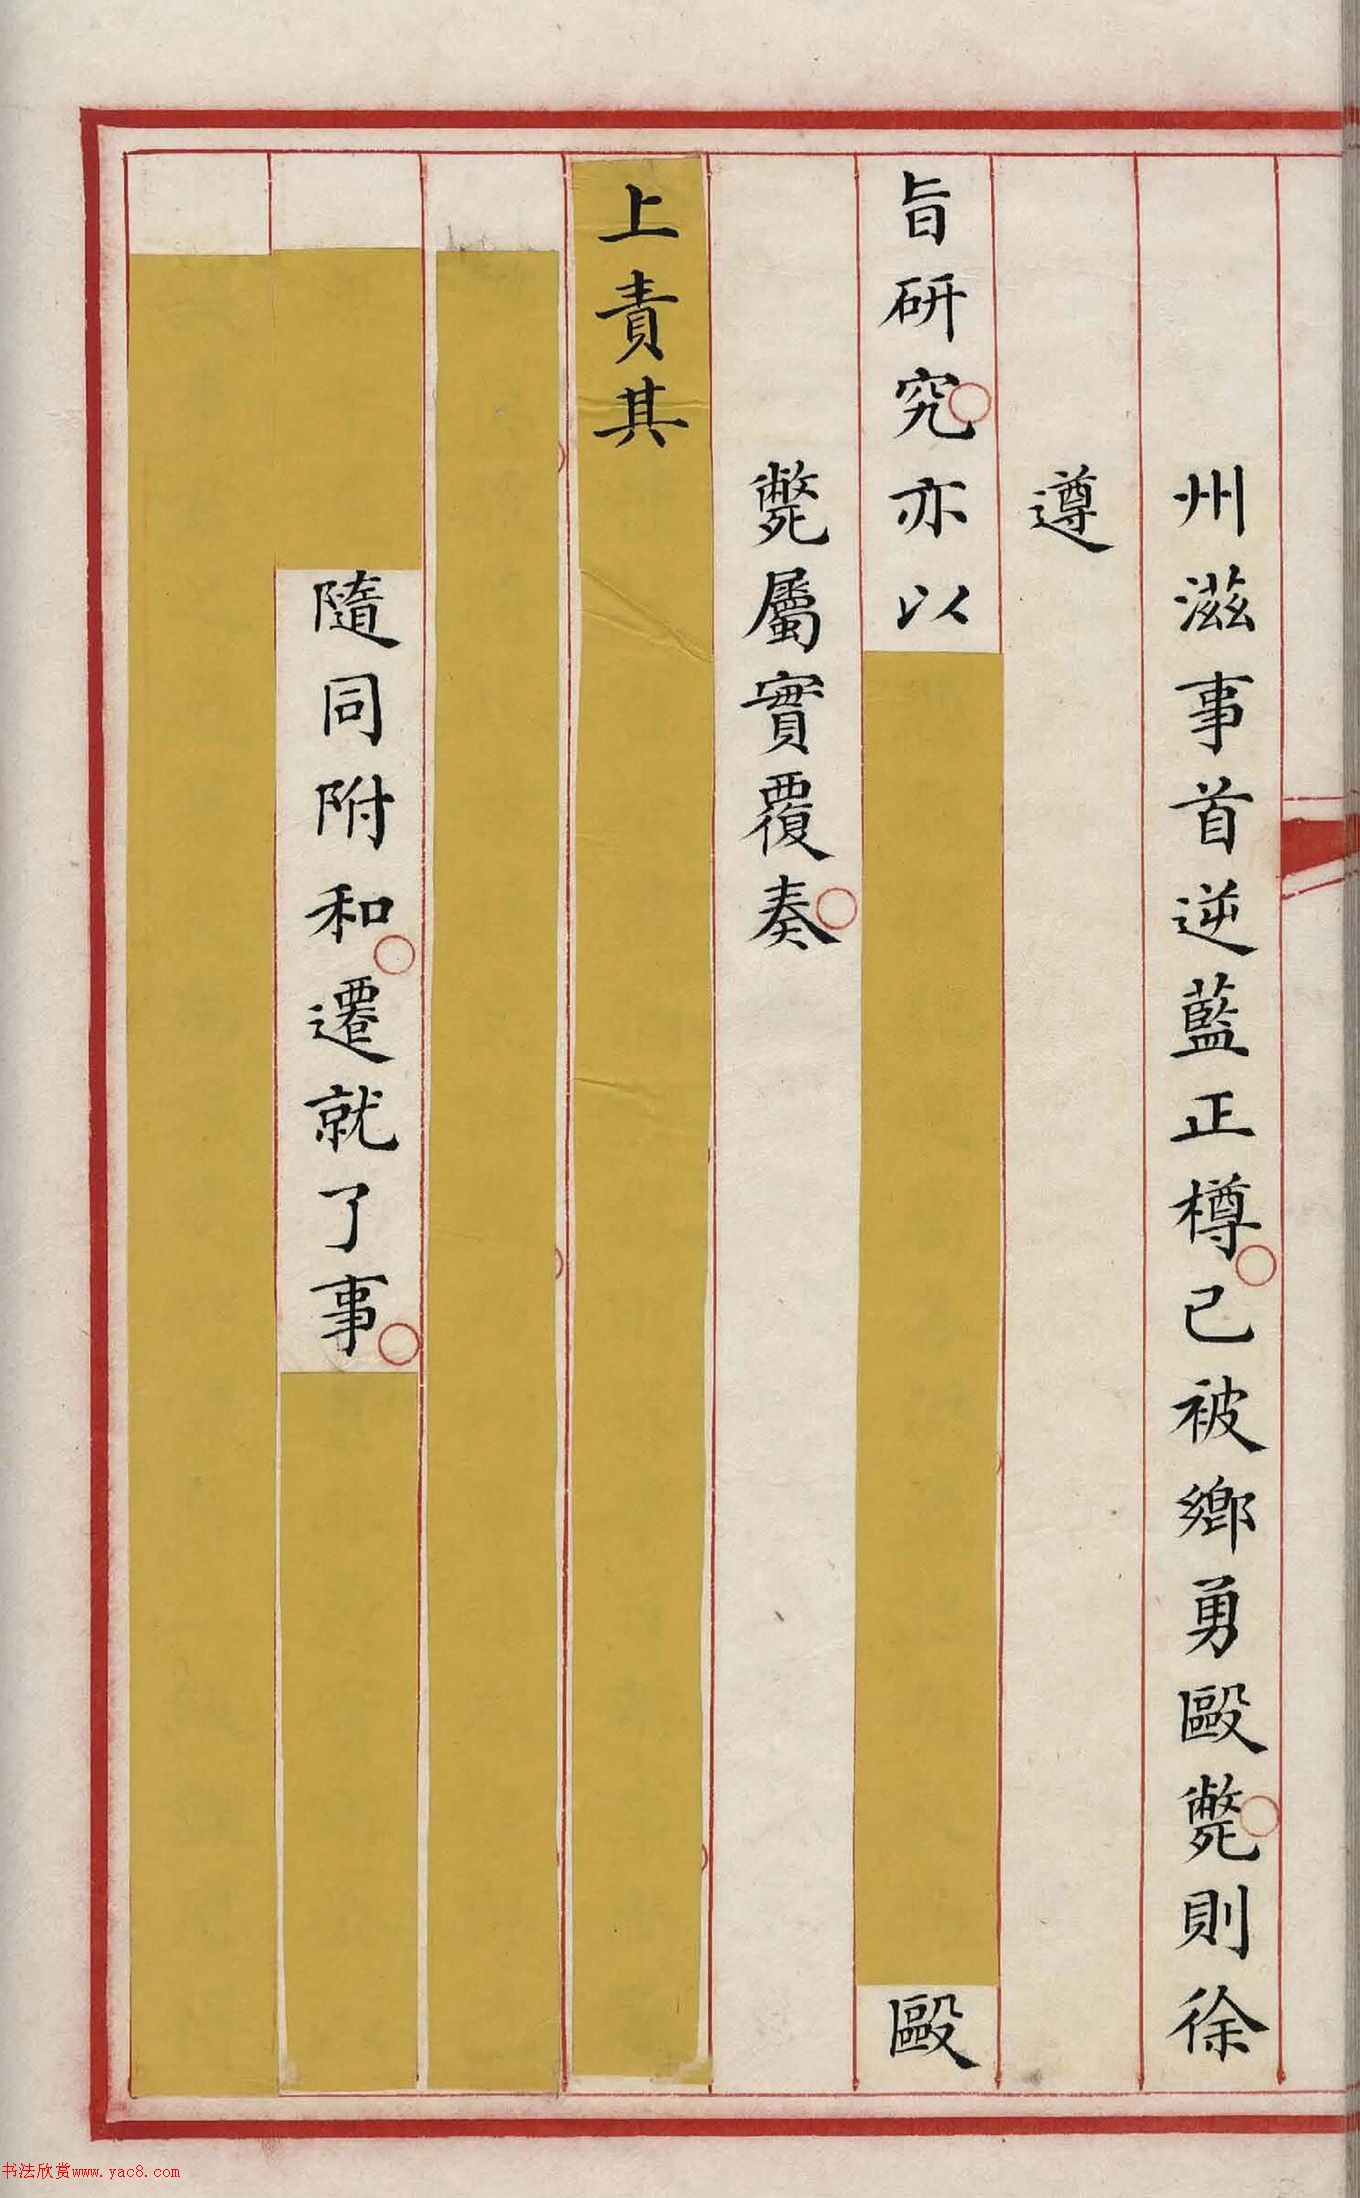 州滋事首逆藍正樽已被鄉勇毆斃則徐
遵
旨研究亦以毆
斃屬實覆奏
上責其
隨同附和遷就了事
书法欣赏www.yac8.com